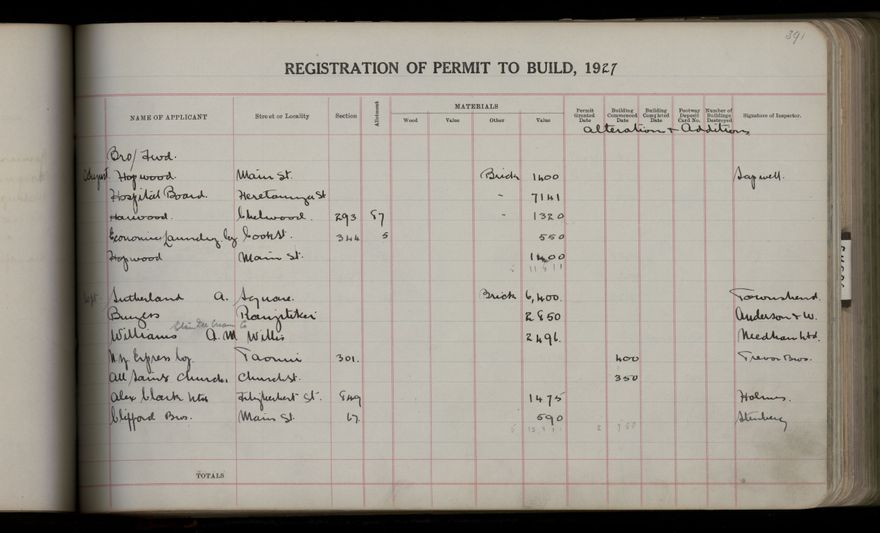 391
REGISTRATION OF PERMIT TO BUILD, 1927
NAME OF APPLICANT Street or Locality Section Allotment MATERIALS Wood Value Other Value Permit Granted Date Building Commenced Date Building Completed Date Footway Deposit Card No. Number of Buildings Destroyed Signature of Inspector.
Alteration & Additions
Bro/Fwd.
August Hopwood Main St. Brick 1400 Sapwell.
Hospital Board. Heretaunga St " 7141
Harwood. Chelwood. 293 87 " 1320
Economic Laundry Coy Cook St. 344 5 550
Hopwood Main St. 1400
Sept. Sutherland A. Square. Brick 6,400. Townshend.
Burgess Rangitikei 2850 Anderson & W.
Glen Dee Cream Co
Williams A. M Willis 2496. Needham Ltd.
N.Z Express Coy. Taonui 301. 400 Trevor Bros.
All Saints Church. Church St. 350
Alex Clark Ltd Fitzherbert St. 849 1475 Holmes.
Clifford Bros. Main St. 67. 590
TOTALS